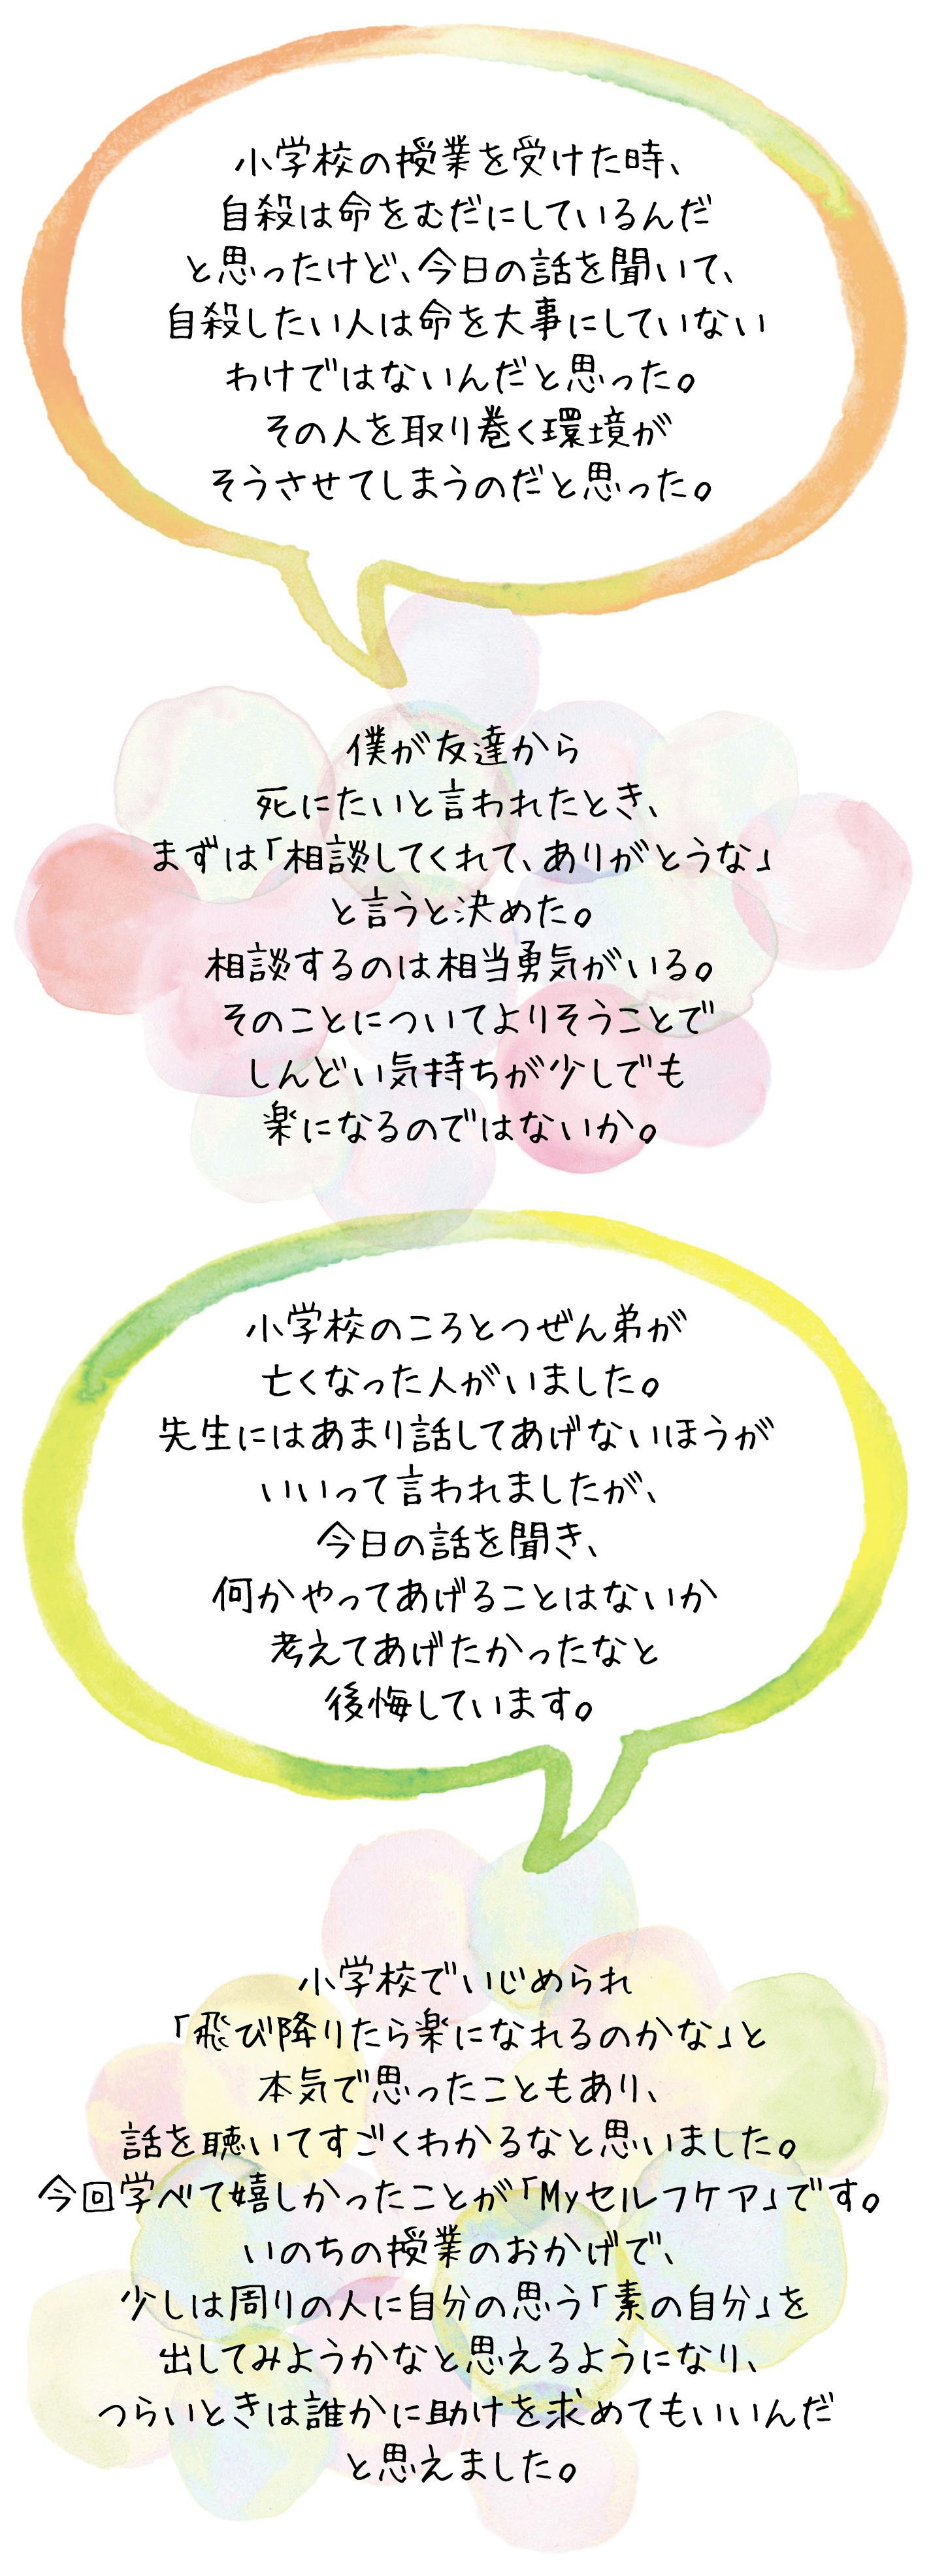 小学校の授業を受けた時、
自殺は命をむだにしているんだ
と思ったけど、今日の話を聞いて、
自殺したい人は命を大事にしていない
わけではないんだと思った。
その人を取り巻く環境が
そうさせてしまうのだと思った。
僕が友達から
死にたいと言われたとき、
まずは「相談してくれて、ありがとうな」
と言うと決めた。
相談するのは相当勇気がいる。
そのことについてよりそうことで
しんどい気持ちが少しでも
楽になるのではないか。
小学校のころとつぜん弟が
亡くなった人がいました。
先生にはあまり話してあげないほうが
いいって言われましたが、
今日の話を聞き、
何かやってあげることはないか
考えてあげたかったなと
後悔しています。
小学校でいじめられ
「飛び降りたら楽になれるのかな」と
本気で思ったこともあり、
話を聴いてすごくわかるなと思いました。
今回学べて嬉しかったことが「Myセルフケア」です。
いのちの授業のおかげで、
少しは周りの人に自分の思う「素の自分」を
出してみようかなと思えるようになり、
つらいときは誰かに助けを求めてもいいんだ
と思えました。